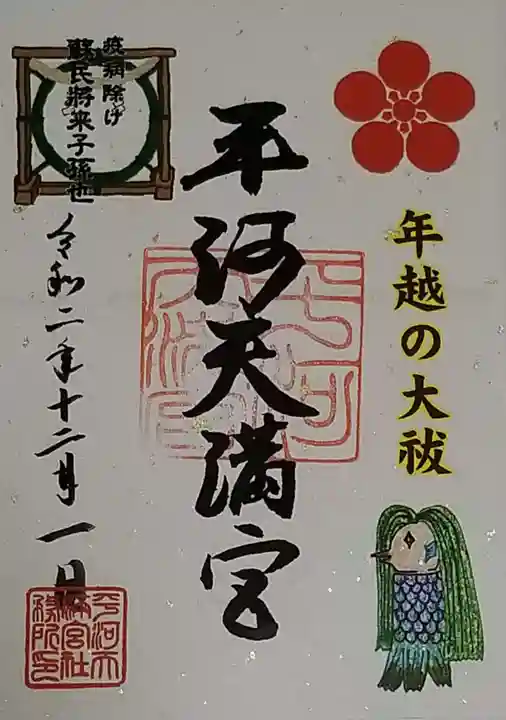 年越の大祓
平河天満宮
疫病除け
蘇民将来子孫也
令和二年十二月一日
平河天
満宮社
務所印